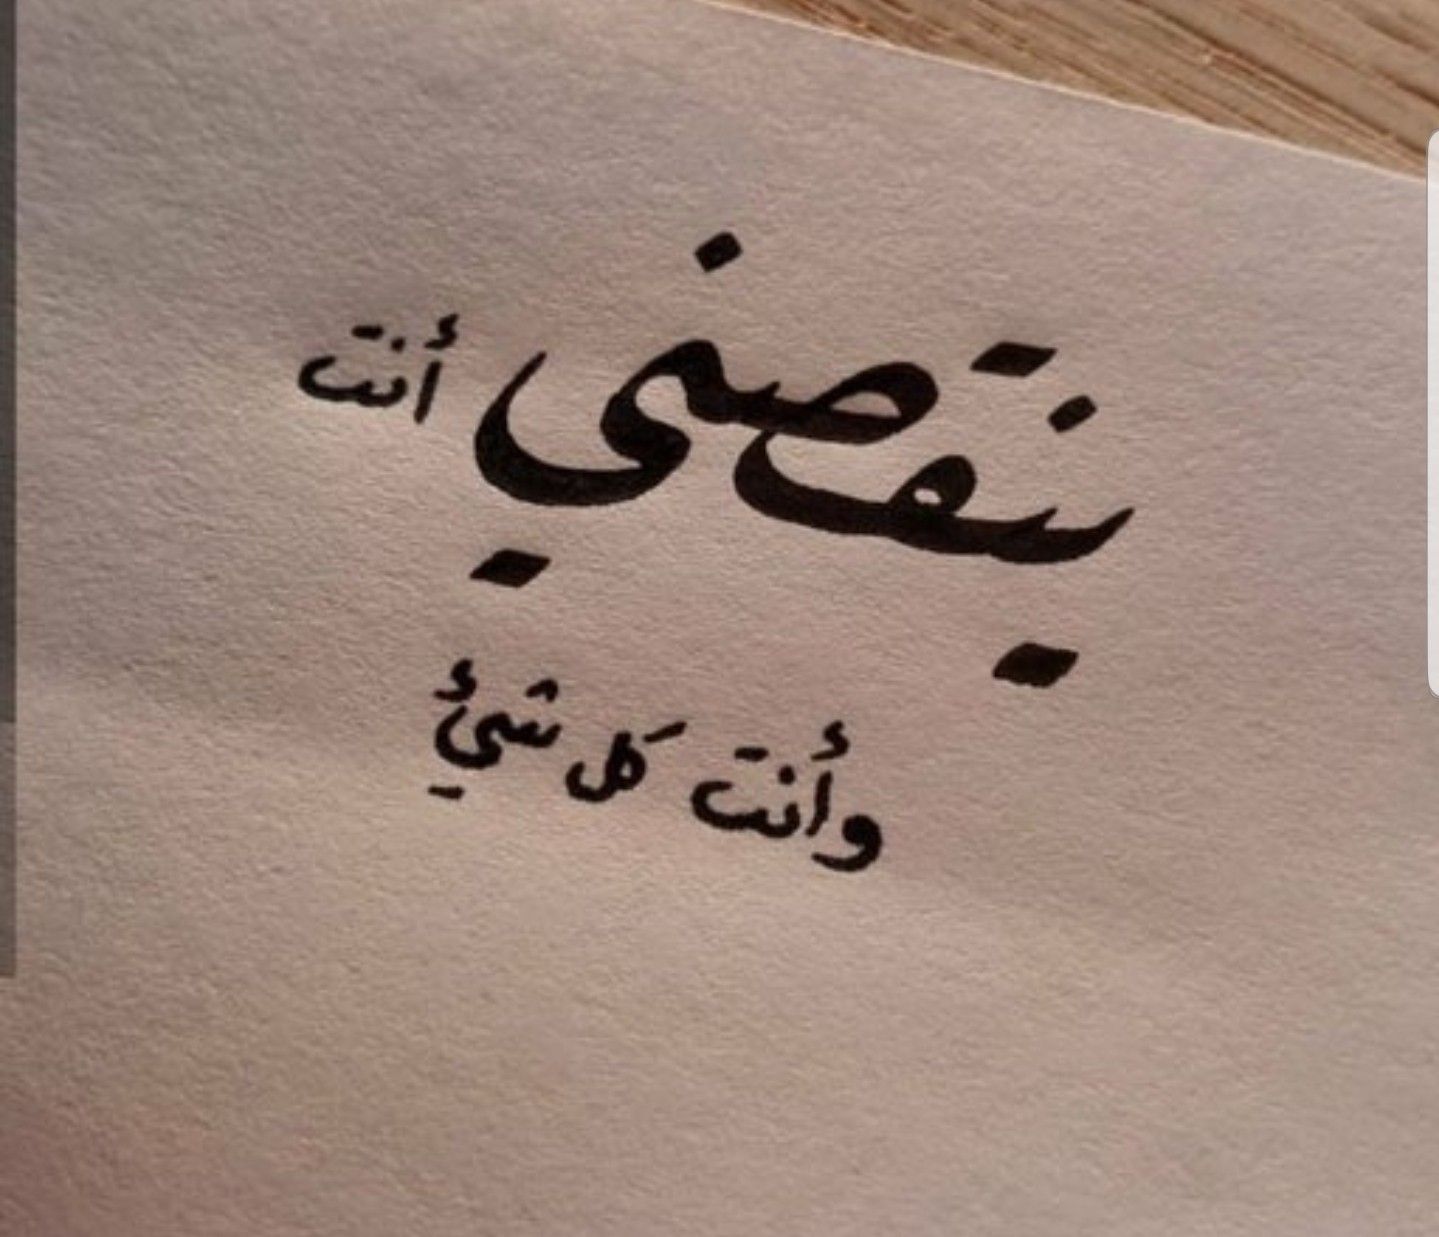 ينقصني أنت
وأنت كل شيئ